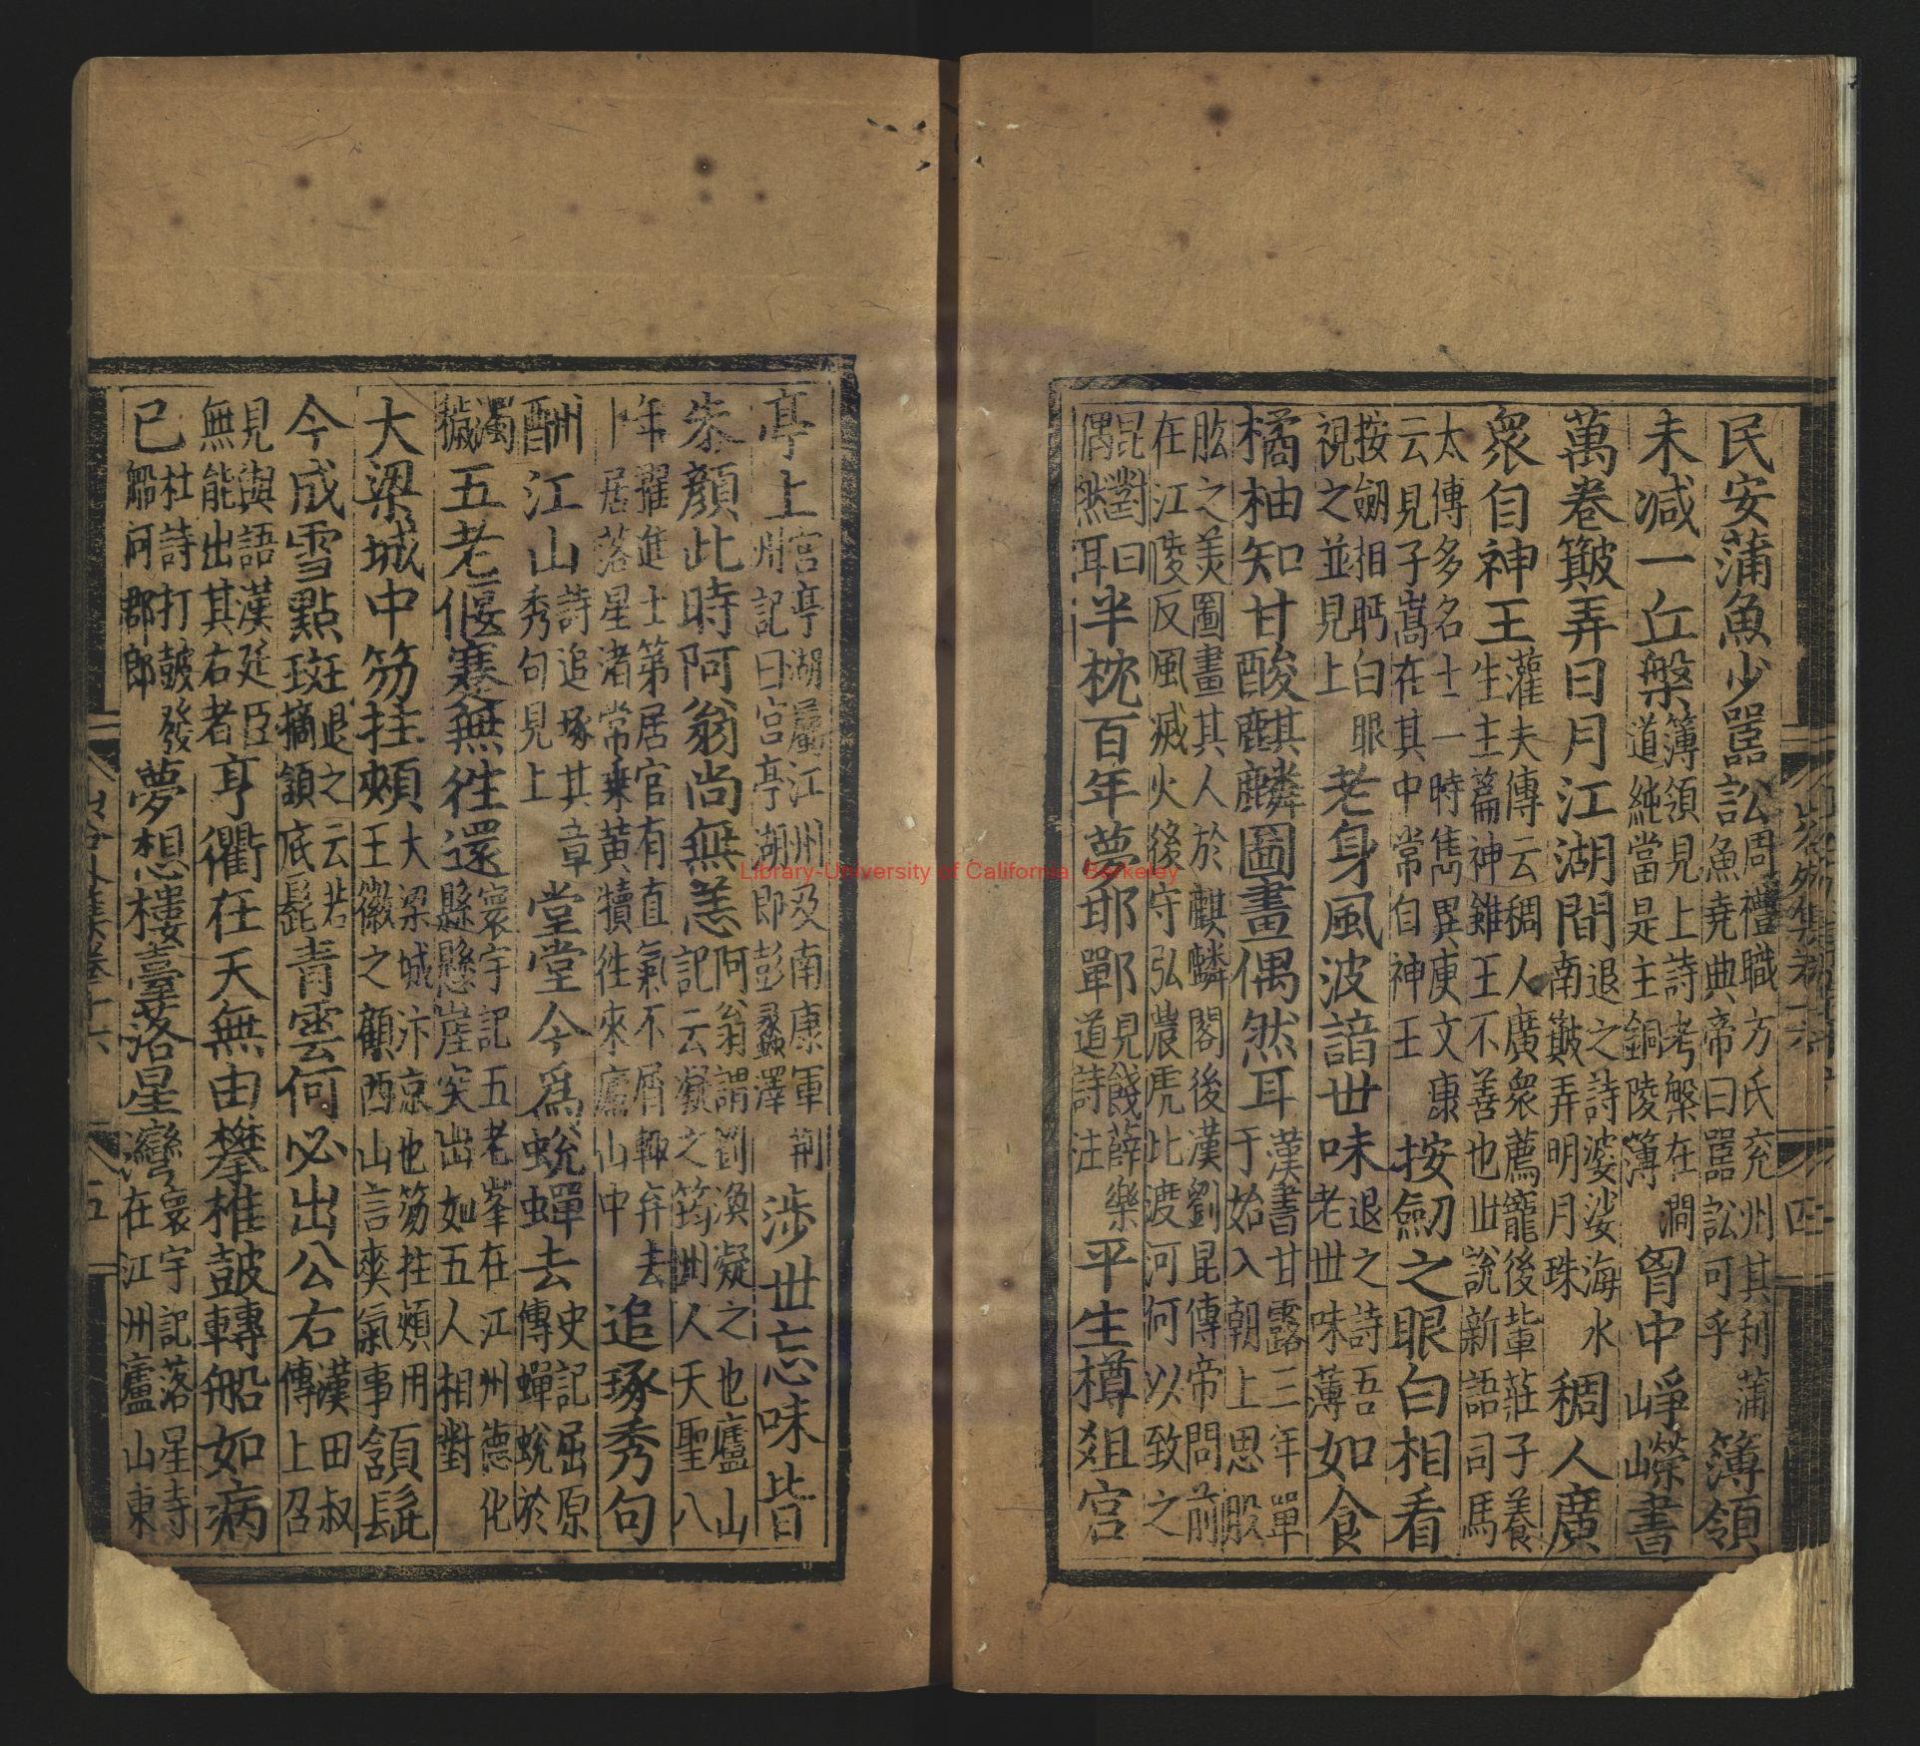 山谷外集卷十六
四
民安蒲魚少嚚訟周禮職方氏兖州其利蒲魚堯典帝曰嚚訟可乎簿領
未减一丘槃簿領見上詩考槃在澗道純當是主銅陵簿胷中崢嶸書
萬卷簸弄日月江湖間退之詩婆娑海水南簸弄明月珠稠人廣
衆自神王灌夫傳云稠人廣衆薦寵後軰莊子養生主篇神雖王不善也丗說新語司馬
太傅多名士一時雋異庾文康云見子嵩在其中常自神王按劒之眼白相看
按劒相眄白眼視之並見上老身風波諳丗味退之詩吾老丗味薄如食
橘柚知甘酸麒麟圖畫偶然耳漢書甘露三年單于始入朝上思股
肱之美圖畫其人於麒麟閣後漢劉昆傳帝問前在江陵反風滅火後守弘農虎北渡河何以致之
昆對曰偶然耳半枕百年夢邯鄲見餞薛樂道詩注平生樽爼宫
亭上宫亭湖屬江州及南康軍荆州記曰宫亭湖即彭蠡澤涉丗忘味皆
朱顔此時阿翁尚無恙阿翁謂劉渙凝之也廬山記云凝之筠州人天聖八
年擢進士第居官有直氣不屑輙弃去卜居落星渚常乗黄犢徃來廬山中追琢秀句
酬江山詩追琢其章秀句見上堂堂今爲蛻蟬去史記屈原傳蟬蛻於
濁穢五老偃蹇無徃還寰宇記五老峯在江州德化縣懸崖突出如五人相對
大梁城中笏拄頰大梁城汴京也笏拄頰用王徽之顧西山言爽氣事頷髭
今成雪點斑退之云若摘頷底髭青雲何必出公右漢田叔傳上召
見與語漢廷臣無能出其右者亨衢在天無由攀椎鼓轉船如病
已杜詩打皷發船何郡郎夢想樓臺落星灣寰宇記落星寺在江州廬山東
山谷外集卷十六
五
Library-University of California Berkeley